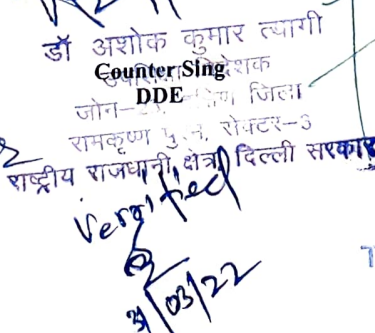 डॉ अशोक कुमार त्यागी
Counter Sing
DDE
जोन– जिला
रामकृष्ण पु सेक्टर–3
राष्ट्रीय राजधानी क्षेत्र दिल्ली सरकार
Verified
03/22